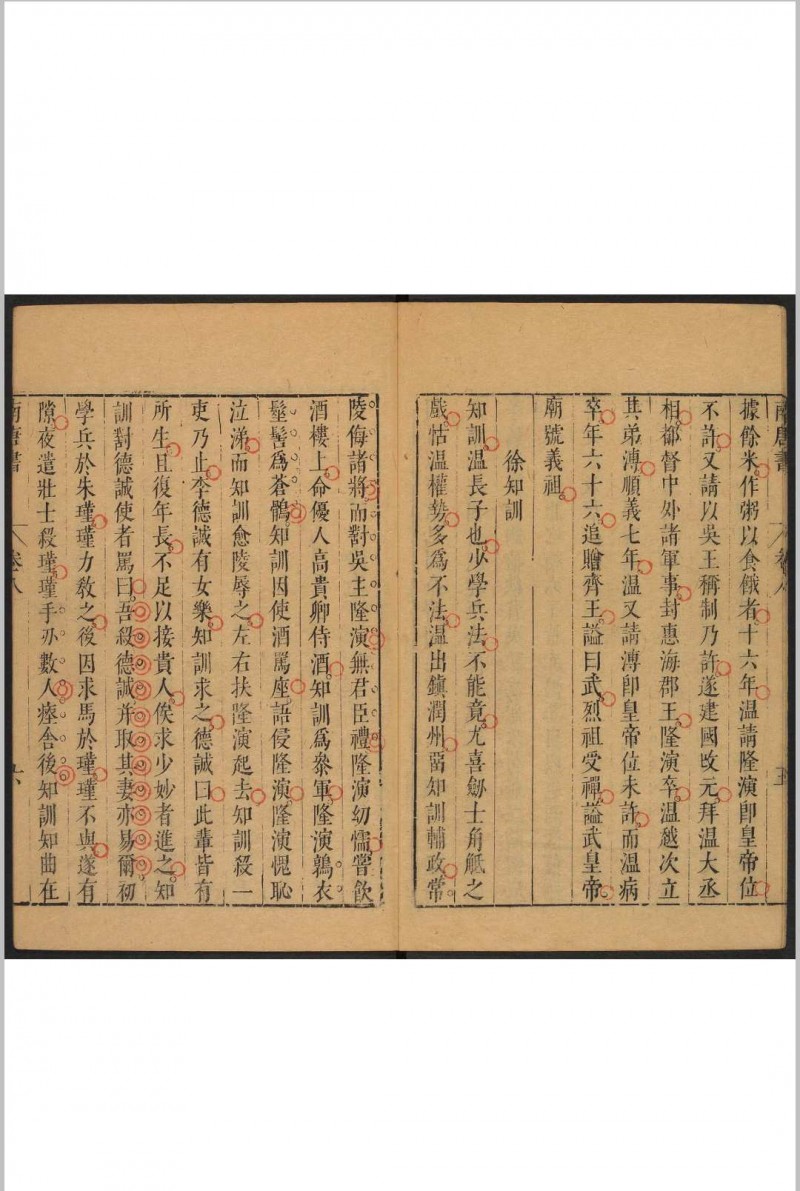 南唐書 卷八 五
據餘米作粥以食餓者十六年温請隆演卽皇帝位
不許又請以吳王稱制乃許遂建國改元拜温大丞
相都督中外諸軍事封惠海郡王隆演卒温越次立
其弟溥順義七年温又請溥卽皇帝位未許而温病
卒年六十六追贈齊王謚曰武烈祖受禪謚武皇帝
廟號義祖
徐知訓
知訓温長子也少學兵法不能竟尤喜劒士角觝之
戲怙温權勢多為不法温出鎮潤州畱知訓輔政常
陵侮諸將而對吳主隆演無君臣禮隆演幼懦嘗飲
酒樓上命優人高貴卿侍酒知訓為叅軍隆演鶉衣
髽髻爲蒼鶻知訓因使酒罵座語侵隆演隆演愧恥
泣涕而知訓愈陵辱之左右扶隆演起去知訓殺一
吏乃止李德誠有女樂知訓求之德誠曰此輩皆有
所生且復年長不足以接貴人俟求少妙者進之知
訓對德誠使者罵曰吾殺德誠并取其妻亦易爾初
學兵於朱瑾瑾力敎之後因求馬於瑾瑾不與遂有
隙夜遣壯士殺瑾瑾手刃數人瘞舍後知訓知曲在
南唐書 卷八 六